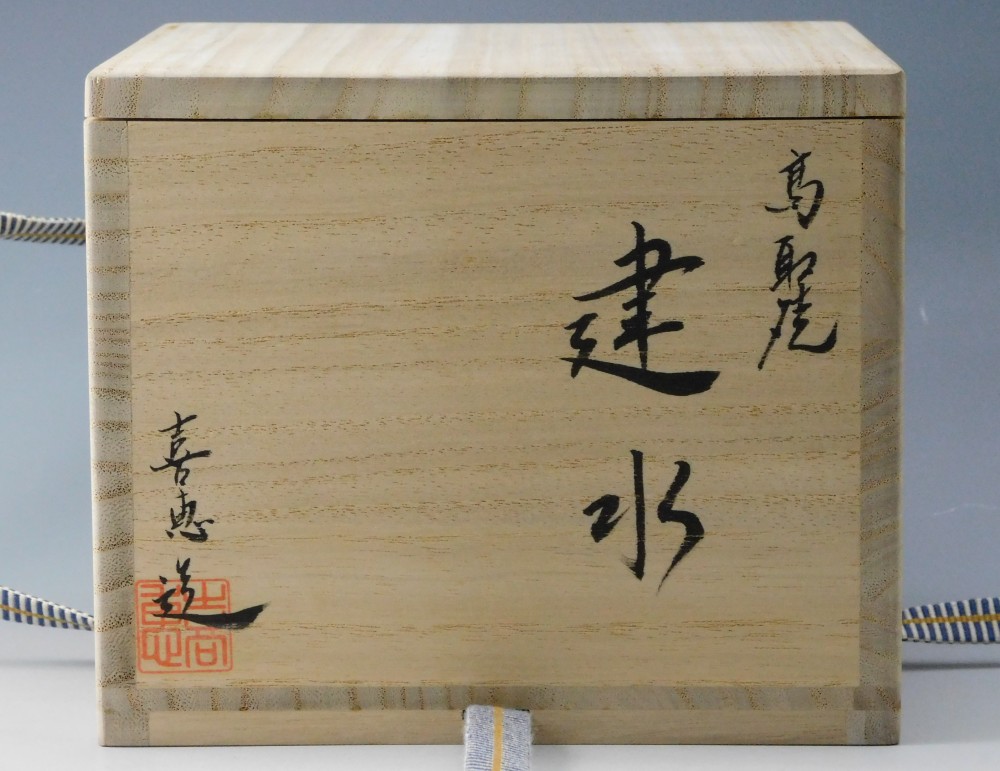 高取焼
建水
喜恵造